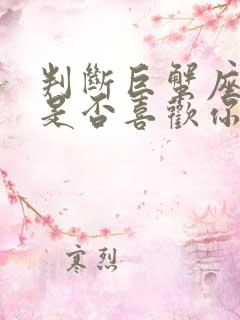 判斷巨蟹座
是否喜歡你
寒烈